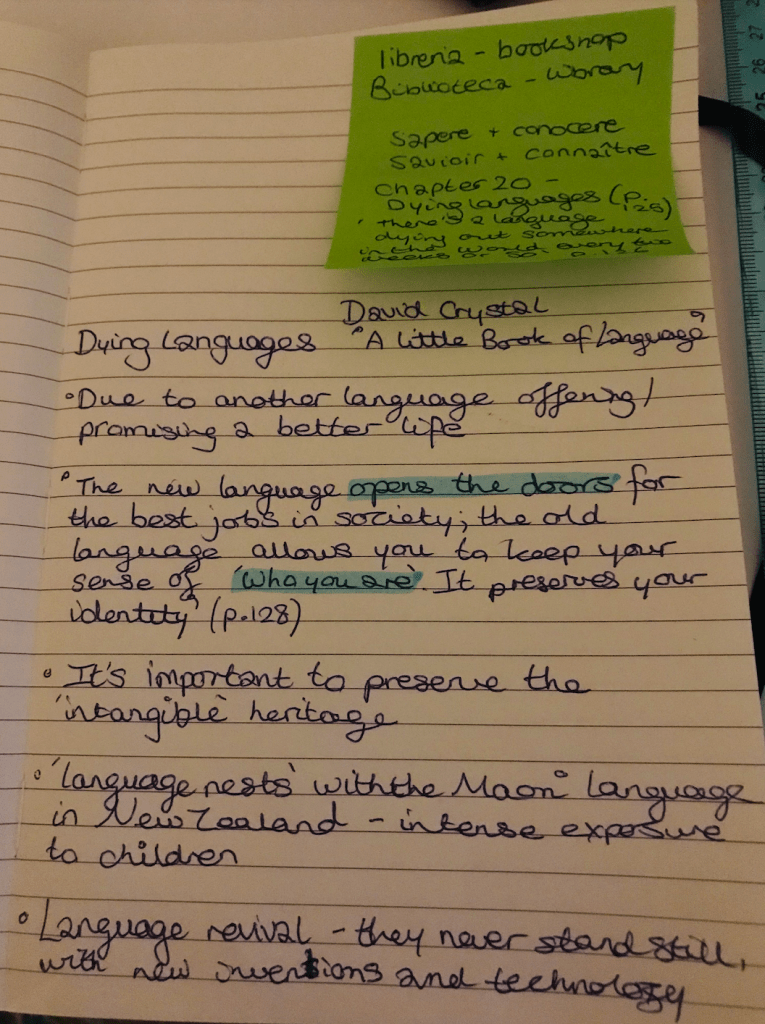 libreria - bookshop
Biblioteca - library
sapere + conocere
savioir + connaître
Chapter 20 -
Dying languages (p.128)
' there's a language
dying out somewhere
in the world every two
weeks or so. p.132
David Crystal
Dying Languages "A Little Book of Language"
• Due to another language offering/
promising a better life
• The new language opens the doors for
the best jobs in society; the old
language allows you to keep your
sense of 'who you are'. It preserves your
identity' (p.128)
• It's important to preserve the
'intangible' heritage
• 'language nests' with the Maori language
in New Zealand - intense exposure
to children
• Language revival - they never stand still,
with new inventions and technology